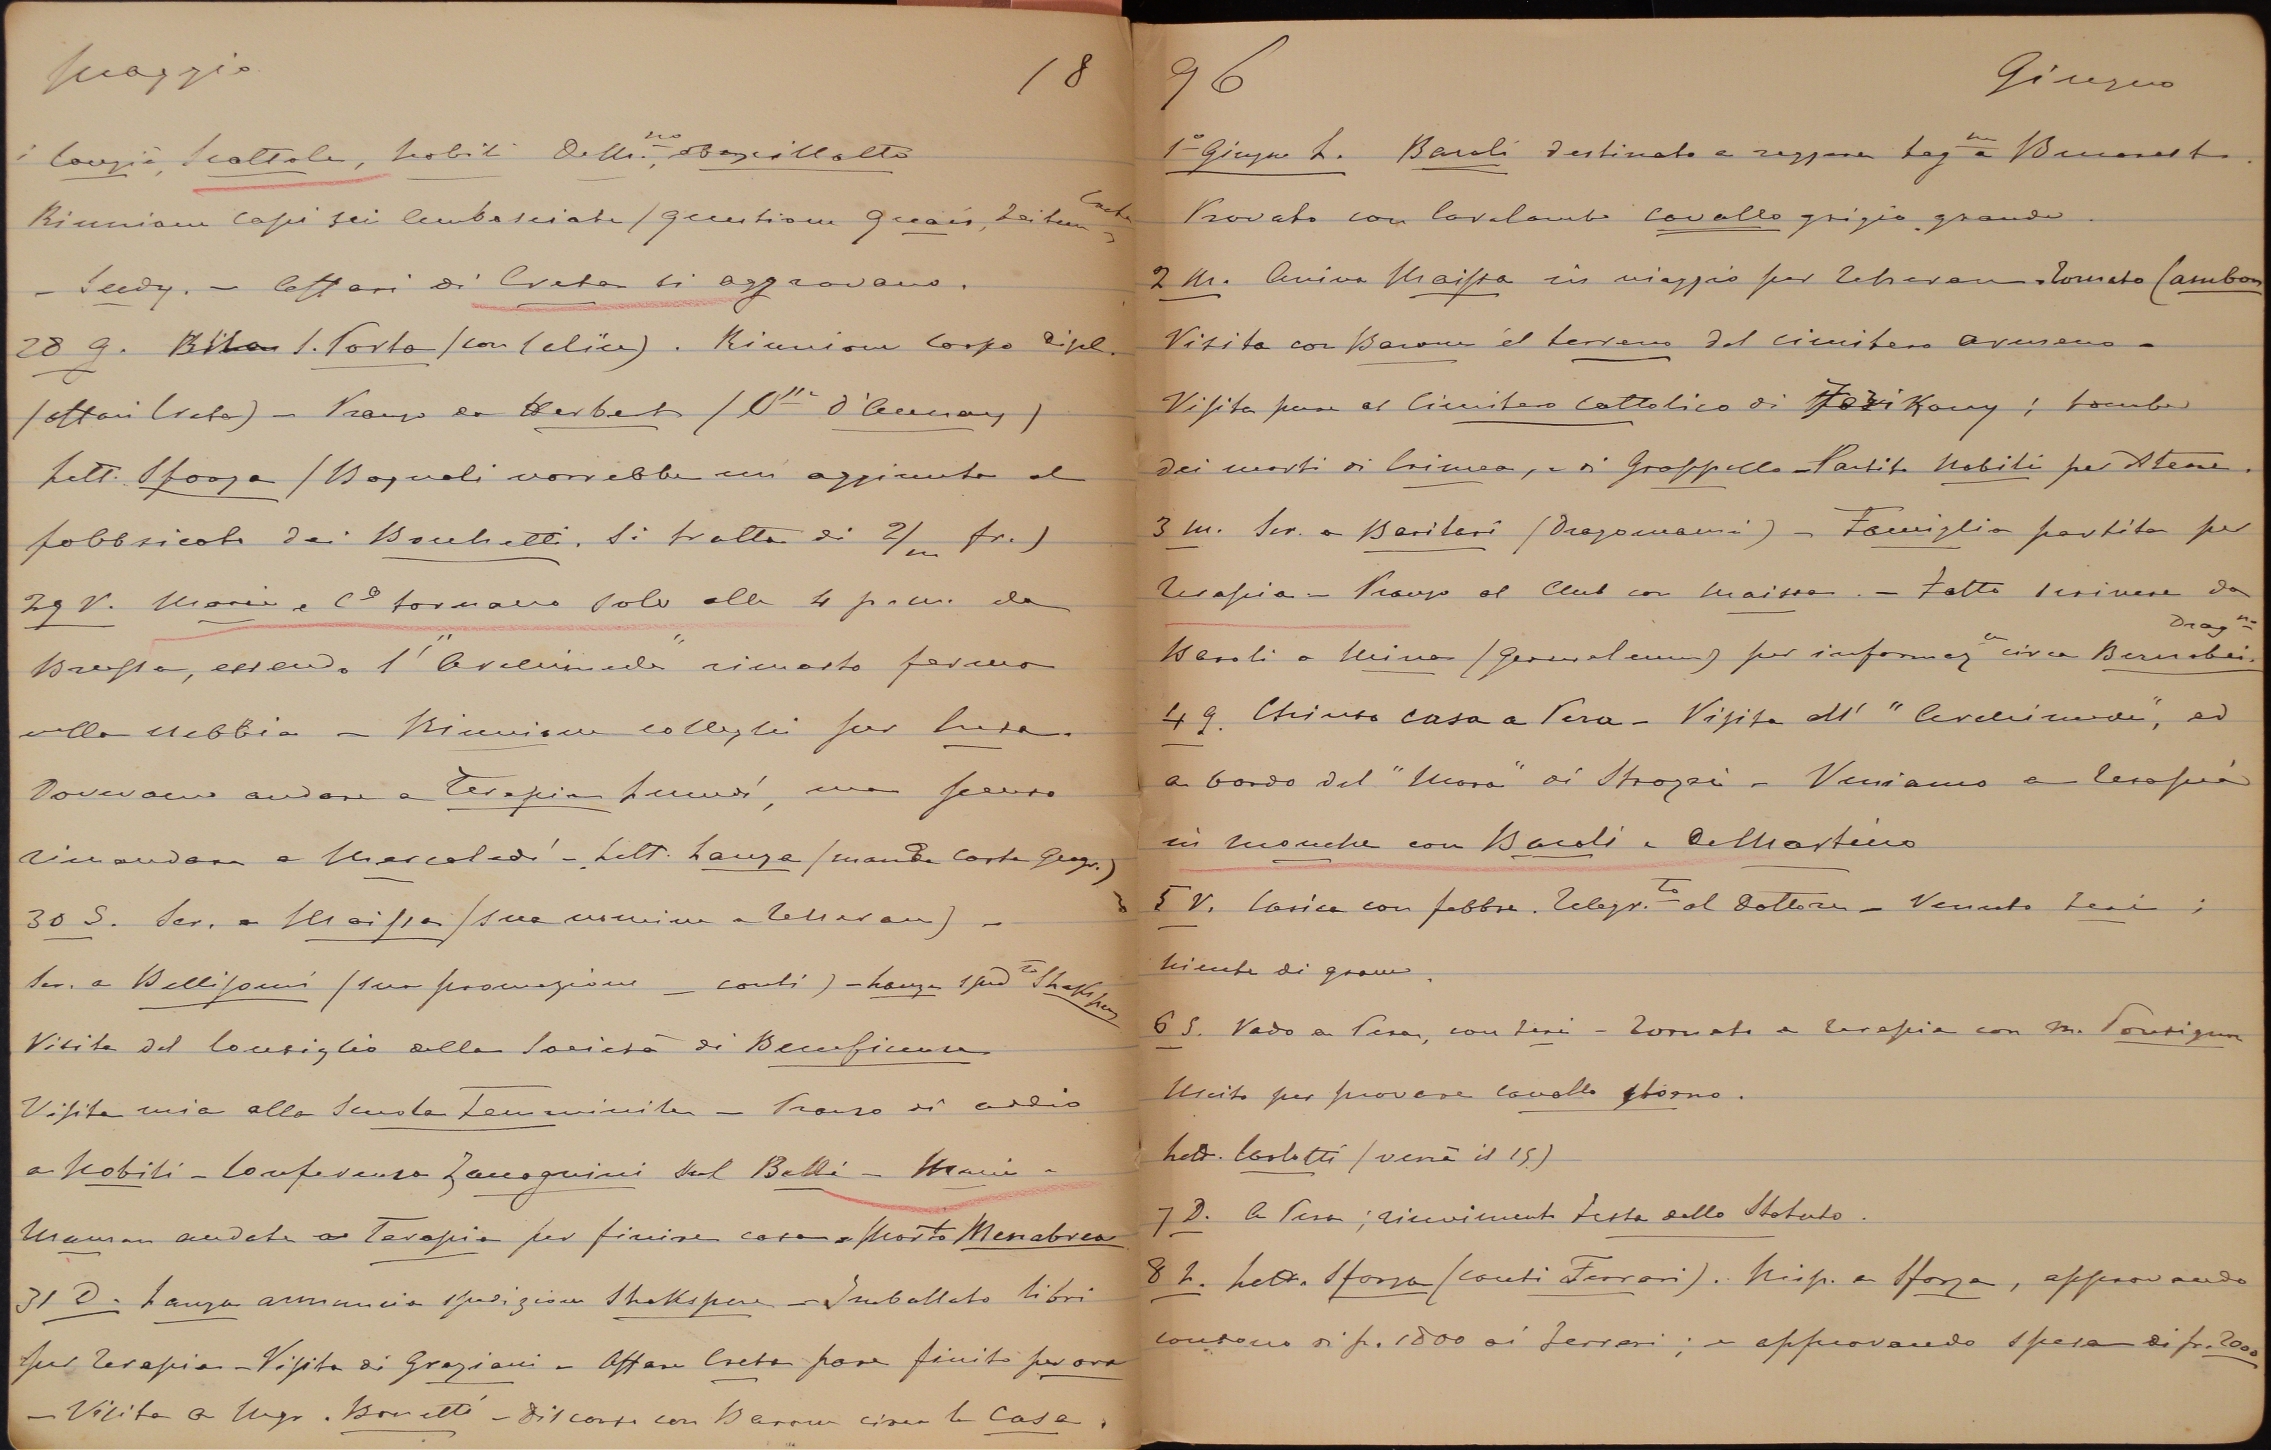 Maggio 18
i Cangià, Scattola, Nobili Dellⁿᵒ,
Riunione capi sei Ambasciate (questione Quais, Zeitun, Creta
– Seedy. – Affari di Creta si aggravano.
28 G. S. Porta (con Calice). Riunione Corpo dipl.
(affari Creta) – Pranzo da Herbert
Lett. Sforza (Bagnoli vorrebbe un' aggiunta al
fabbricato dei Bonchetti. Si tratta di 2/m fr.)
29 V. Maria e Cª tornano solo alle 4 p.m. da
Brussa, essendo l' "Archimede" rimasto fermo
nella nebbia – Riunione colleghi per Creta.
Dovevamo andare a Terapia Lunedì, ma penso
rimandare a Mercoledì – Lett. Lanza (manda carta geogr.)
30 S. Scr. a Maissa (sua nomina a Teheran) –
Scr. a Bellisomi (sua promozione – conti) – Lanza spedᵗᵒ Shakspere
Visita del Consiglio della Società di Beneficenza
Visita mia alla Scuola Femminile – Pranzo di addio
a Nobili – Conferenza Zanagnini sul Belli – Maria e
Maman andate a Terapia per finire casa – Morto Menabrea
31 D. Lanza annuncia spedizione Shakspere – Imballato libri
per Terapia – Visita di Graziani – Affare Creta pare finito per ora
– Visita a Mgr. Bonetti – Discorso con Barone circa la casa.
96 Giugno
1° Giugno L. Baroli destinato a reggere Legⁿᵉ a Bucarest.
Provato con Cavalambo cavallo grigio grande.
2 M. Arriva Maissa in viaggio per Teheran – Tornato Cambon
Visita con Barone al terreno del cimitero armeno –
Visita pure al Cimitero cattolico di Ferikeuy; tombe
dei morti di Crimea, e di Grappello – Partito Nobili per Atene.
3 M. Scr. a Baritari (Dragomanni) – Famiglia partita per
Terapia – Pranzo al Club con Maissa. – Fatto scrivere da
Baroli a Mina (Gerusalemme) per informazⁿⁱ circa Dragⁿᵒ Bernabei.
4 G. Chiusa casa a Pera – Visita all' "Archimede", ed
a bordo del "Mora" di Strozzi – Veniamo a Terapia
in mouche con Baroli e DeMartino
5 V. Carica con febbre. Telegr.ᵗᵒ al Dottore – Venuto Leri;
niente di grave.
6 S. Vado a Pera, con Leri – Tornato a Terapia con M. Ponsigun
Uscito per provare cavallo storno.
Lett. Carlotti (verrà il 15)
7 D. A Pera; ricevimento Festa dello Statuto.
8 L. Lett. Sforza (conti Ferrari). Risp. a Sforza, approvando
condono di fr. 1800 ai Ferrari; e approvando spesa di fr. 2000